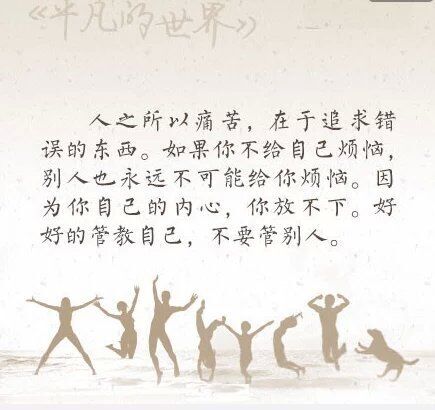 《平凡的世界》
人之所以痛苦，在于追求错
误的东西。如果你不给自己烦恼，
别人也永远不可能给你烦恼。因
为你自己的内心，你放不下。好
好的管教自己，不要管别人。